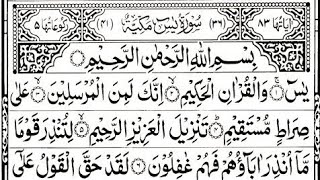 اٰیاتھا ۸۳ (۳۶) سُوْرَةُ يٰسٓ مَكِّيَّةٌ (۴۱) رکوعاتھا ۵
بِسْمِ اللّٰهِ الرَّحْمٰنِ الرَّحِيْمِ
يٰسٓ ۚ وَالْقُرْاٰنِ الْحَكِيْمِ ۙ اِنَّكَ لَمِنَ الْمُرْسَلِيْنَ ۙ عَلٰى
صِرَاطٍ مُّسْتَقِيْمٍ ؕ تَنْزِيْلَ الْعَزِيْزِ الرَّحِيْمِ ۙ لِتُنْذِرَ قَوْمًا
مَّاۤ اُنْذِرَ اٰبَآؤُهُمْ فَهُمْ غٰفِلُوْنَ ۶ لَقَدْ حَقَّ الْقَوْلُ عَلٰۤى